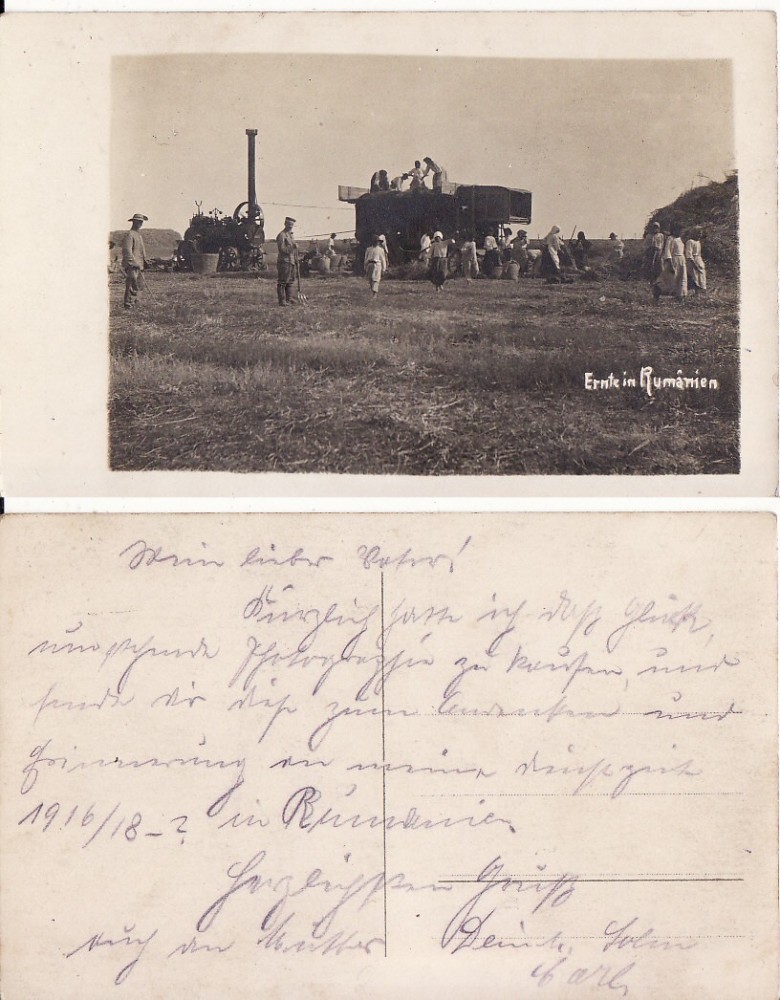 Ernte in Rumänien
Mein lieber Vater!
Kürzlich hatte ich daß Glück,
umstehende Photographie zu kaufen, und
sende dir diese zum Andenken und
Erinnerung an meine Dienstzeit
1916/18-? in Rumänien
Herzlichsten Gruß
auch an Mutter Dein Sohn
Carl